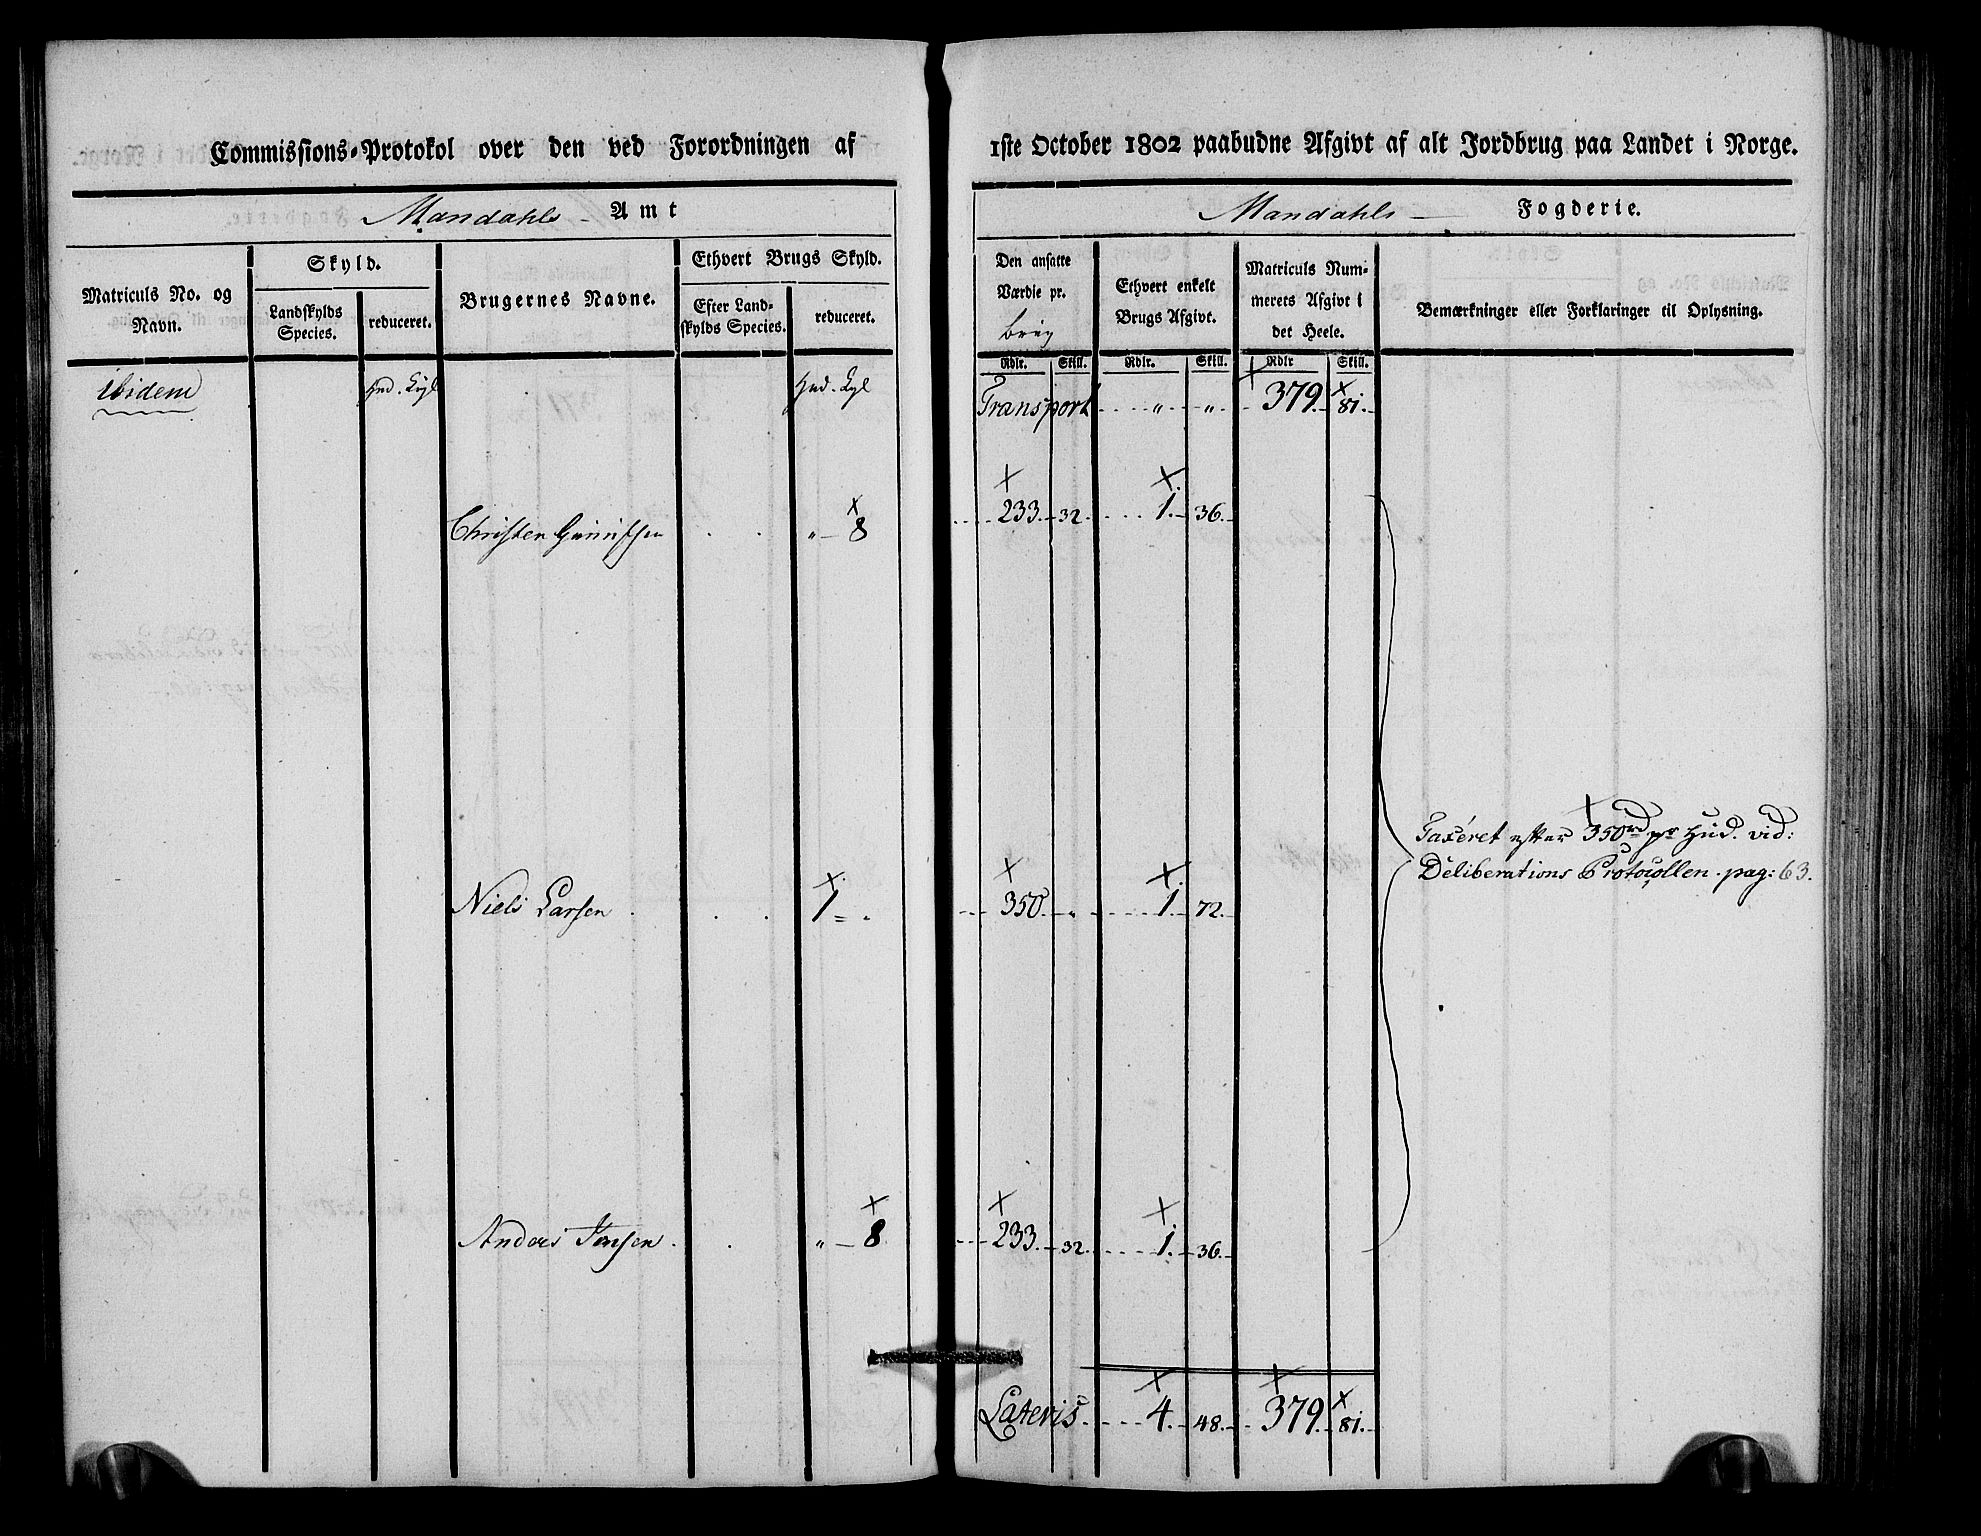 Commissions-Protokol over den ved Forordningen af 1ste October 1802 paabudne Afgivt af alt Jordbrug paa Landet i Norge.
Mandahls Amt Mandahls Fogderie.
Matriculs No. og Navn.
Skyld.
Landskylds Species.
reduceret.
Brugernes Navne.
Ethvert Brugs Skyld.
Efter Landskylds Species.
reduceret.
Den ansatte Værdie pr. brug
Ethvert enkelt Brugs Afgivt.
Matriculs Nummerets Afgivt i det Heele.
Bemærkninger eller Forklaringer til Oplysning.
Rdlr. Skill. Rdlr. Skill. Rdlr Skill.
ibidem Hud. Hud. Transport „ „ 379. 81.
Christen „ 8 233. 32. 1. 36.
Taxeret efter 350rd pr Hud. vid:
Deliberations Protocollen pag: 63.
Niels Larsen 1 = . 350. „ 1. 72.
Anders Jensen. „ 8 233. 32. 1. 36.
Lateris. 4. 48. 379. 81.